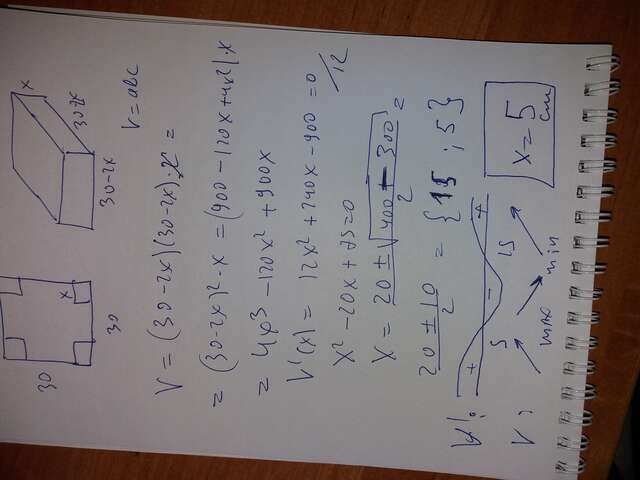 x
30-2x
30-2x
V=abc
30
30
x
V = (30-2x)(30-2x)·x =
= (30-2x)²·x = (900-120x+4x²)·x
= 4x³-120x²+900x
V'(x) = 12x²+240x-900=0 /12
x²-20x+75=0
x = 20±√400-300 / 2 =
20±10 / 2 = {15;5}
V': + - +
5 15
V: max min
x=5 cm